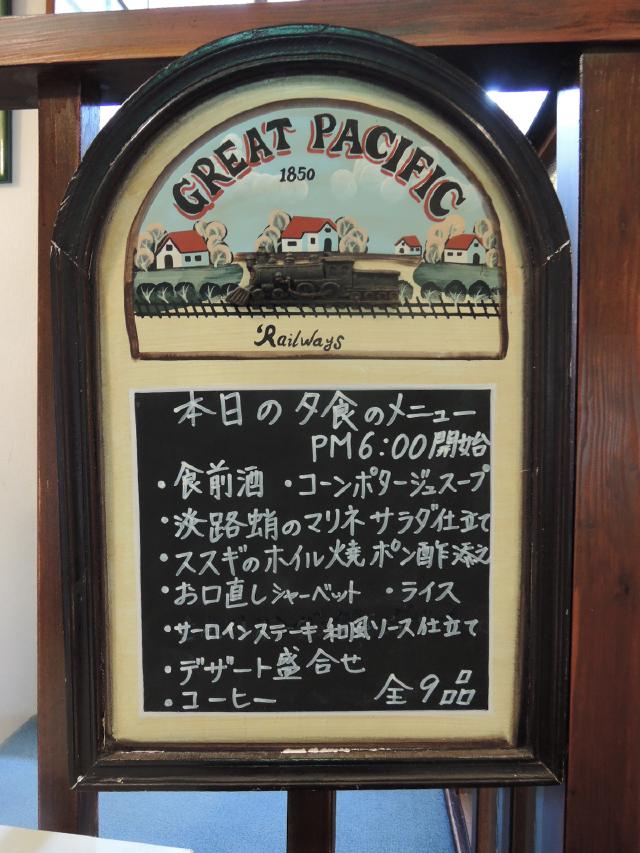 GREAT PACIFIC
1850
Railways
本日の夕食のメニュー
PM6:00開始
・食前酒 ・コーンポタージュスープ
・淡路蛸のマリネサラダ仕立て
・ススギのホイル焼ポン酢添え
・お口直しシャーベット ・ライス
・サーロインステーキ和風ソース仕立て
・デザート盛合せ
・コーヒー 全9品